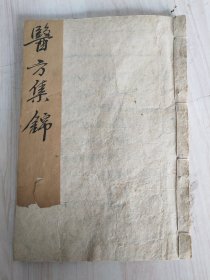 醫方集錦